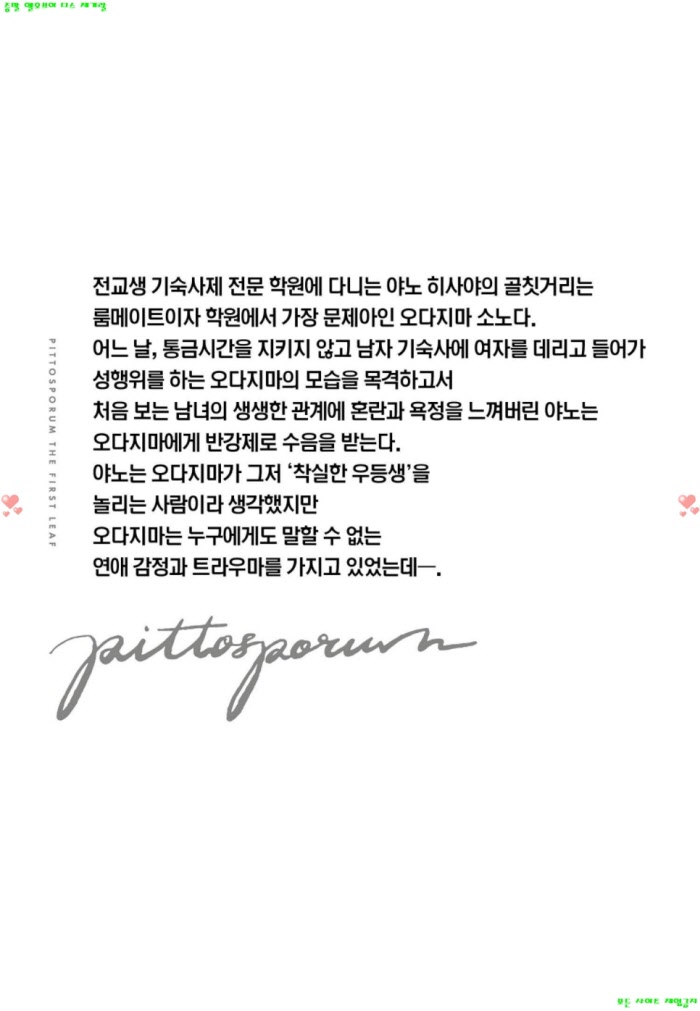 전교생 기숙사제 전문 학원에 다니는 야노 히사야의 골칫거리는
룸메이트이자 학원에서 가장 문제아인 오다지마 소노다.
어느 날, 통금시간을 지키지 않고 남자 기숙사에 여자를 데리고 들어가
성행위를 하는 오다지마의 모습을 목격하고서
처음 보는 남녀의 생생한 관계에 혼란과 욕정을 느껴버린 야노는
오다지마에게 반강제로 수음을 받는다.
야노는 오다지마가 그저 ‘착실한 우등생’을
놀리는 사람이라 생각했지만
오다지마는 누구에게도 말할 수 없는
연애 감정과 트라우마를 가지고 있었는데―.
PITTOSPORUM THE FIRST LEAF
pittosporum
모든 사이트 재업금지